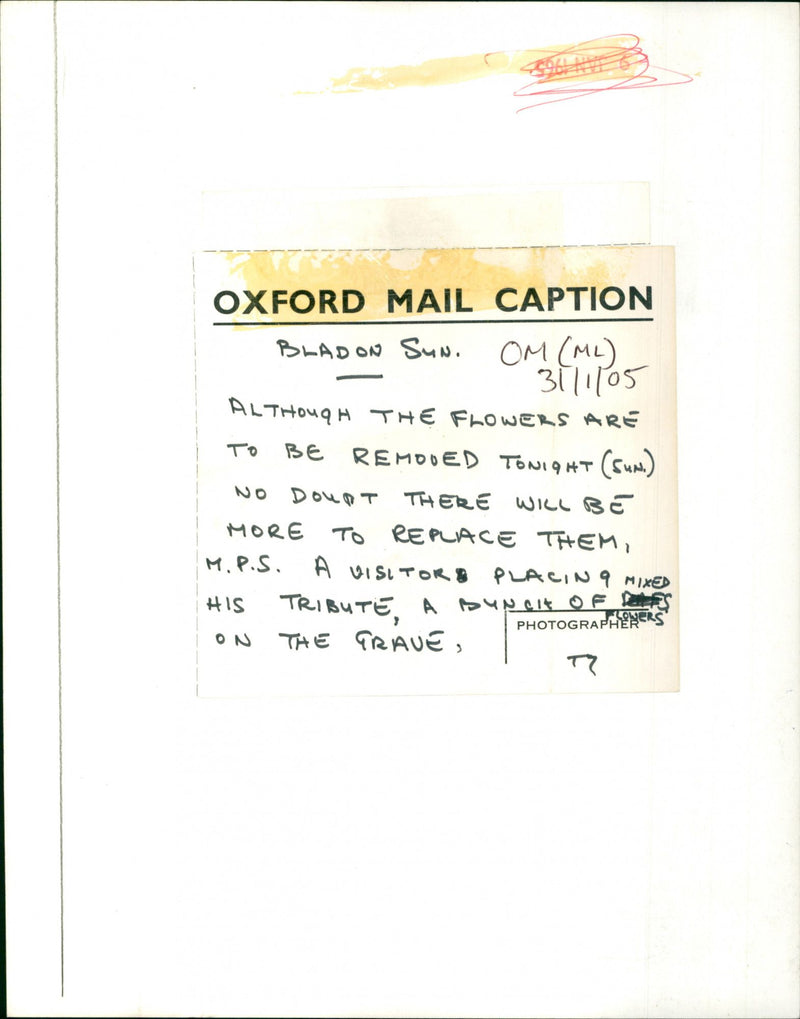 9 JAN 1965
OXFORD MAIL CAPTION
BLADON SUN. OM (ML)
31/1/05
ALTHOUGH THE FLOWERS ARE
TO BE REMOVED TONIGHT (SUN.)
NO DOUBT THERE WILL BE
MORE TO REPLACE THEM,
M.P.S. A VISITOR PLACING MIXED
HIS TRIBUTE, A BUNCH OF
FLOWERS
ON THE GRAVE,
PHOTOGRAPHER